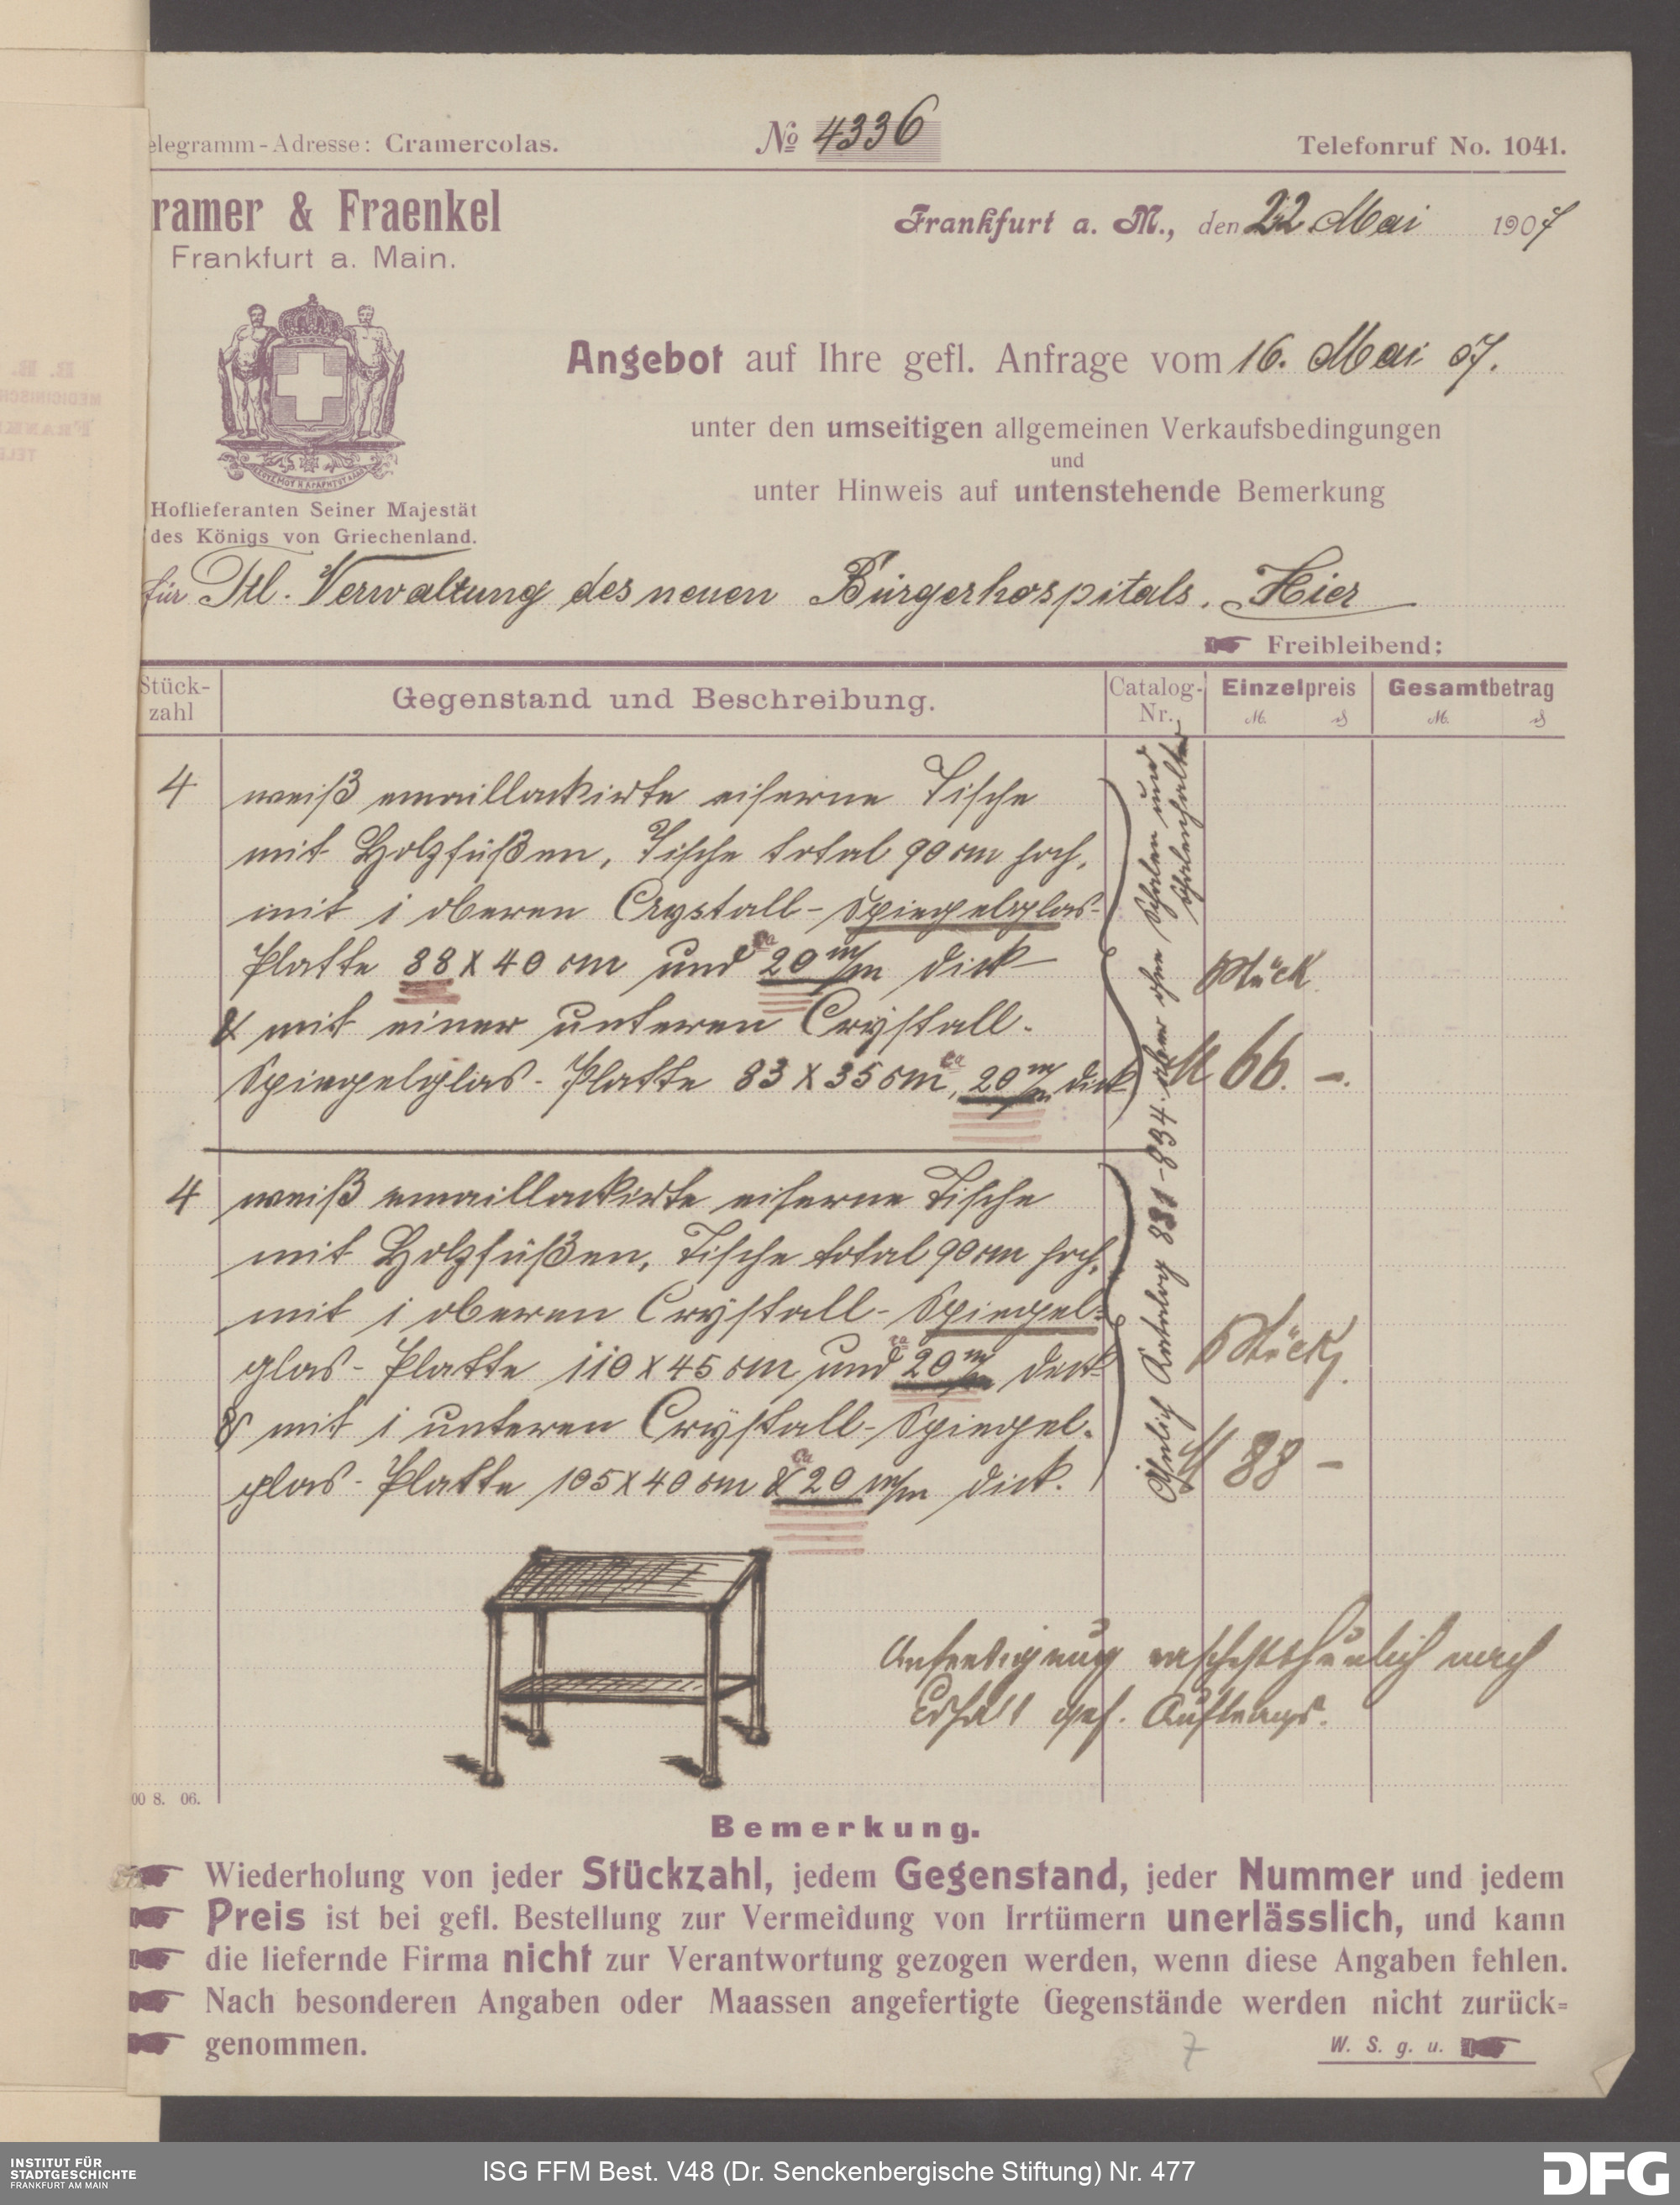 elegramm-Adresse: Cramercolas.
№ 4336
Telefonruf No. 1041.
ramer & Fraenkel
Frankfurt a. Main.
Frankfurt a. M., den 22 Mai 1907
Angebot auf Ihre gefl. Anfrage vom 16. Mai 07.
unter den umseitigen allgemeinen Verkaufsbedingungen
und
unter Hinweis auf untenstehende Bemerkung
Hoflieferanten Seiner Majestät
des Königs von Griechenland.
für Ttl. Verwaltung des neuen Bürgerhospitals. Hier
Freibleibend:
Stück-
zahl
Gegenstand und Beschreibung.
Catalog-
Nr.
Einzelpreis
M. ₰
Gesamtbetrag
M. ₰
4 weiß emaillackirte eiserne Tische
mit Holzfüßen, Tische total 90 cm hoch,
mit 1 oberen Crystall-Spiegelglas-
Platte 88 x 40 cm und ca 20 m/m dick
& mit einer unteren Crystall-
Spiegelglas-Platte 83 x 35 cm, ca 20 m/m dick
Stück
M 66. –.
4 weiß emaillackirte eiserne Tische
mit Holzfüßen, Tische total 90 cm hoch,
mit 1 oberen Crystall-Spiegel-
glas-Platte 110 x 45 cm und ca 20 m/m dick
& mit 1 unteren Crystall-Spiegel-
glas-Platte 105 x 40 cm & ca 20 m/m dick.
Stück
M 88 –
Ähnlich Katalog 831-834. aber ohne Schalen und
Schalenhalter
Anfertigung raschestthunlich nach
Erhalt gef. Auftrags.
00 8. 06.
Bemerkung.
Wiederholung von jeder Stückzahl, jedem Gegenstand, jeder Nummer und jedem
Preis ist bei gefl. Bestellung zur Vermeidung von Irrtümern unerlässlich, und kann
die liefernde Firma nicht zur Verantwortung gezogen werden, wenn diese Angaben fehlen.
Nach besonderen Angaben oder Maassen angefertigte Gegenstände werden nicht zurück=
genommen.
7
W. S. g. u.
INSTITUT FÜR
STADTGESCHICHTE
FRANKFURT AM MAIN
ISG FFM Best. V48 (Dr. Senckenbergische Stiftung) Nr. 477
DFG